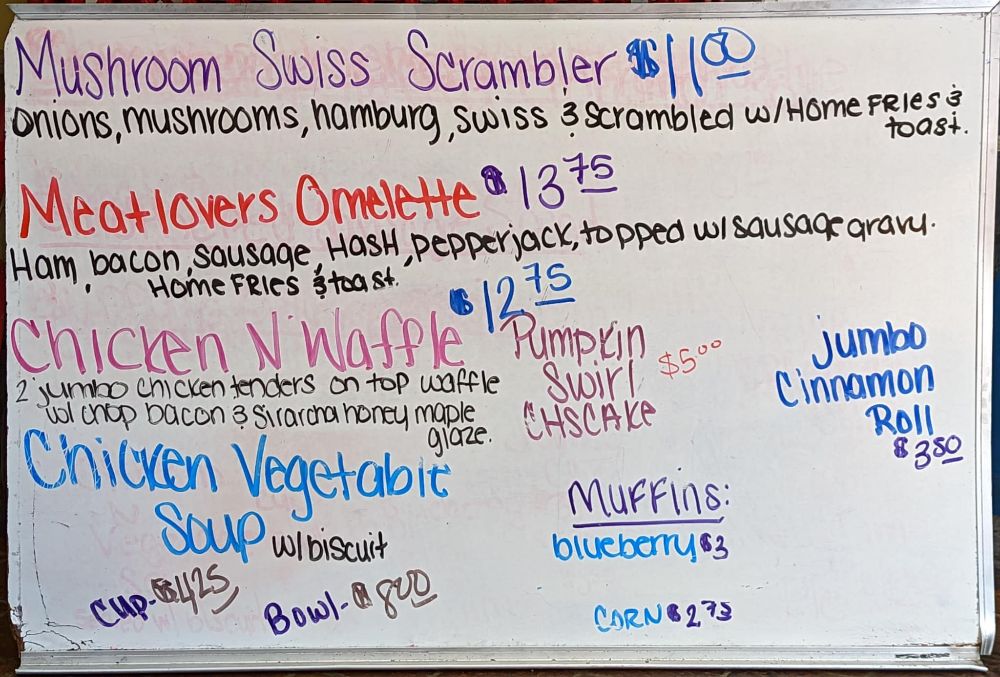 Mushroom Swiss Scrambler $11.00
onions, mushrooms, hamburg, swiss & Scrambled w/Home FRIes &
toast.
Meatlovers Omelette $13.75
Ham, bacon, sausage, HasH, pepperjack, topped w/sausage gravy.
Home FRIes & toast.
$12.75
Chicken N' Waffle
2 jumbo chicken tenders on top waffle
w/ chop bacon & Sirarcha honey maple
glaze.
Pumpkin
Swirl $5.00
CHSCAKe
jumbo
Cinnamon
Roll
$3.50
Chicken Vegetable
Soup w/biscuit
Cup- $4.25
Bowl- $8.00
Muffins:
blueberry $3
CORN $2.75